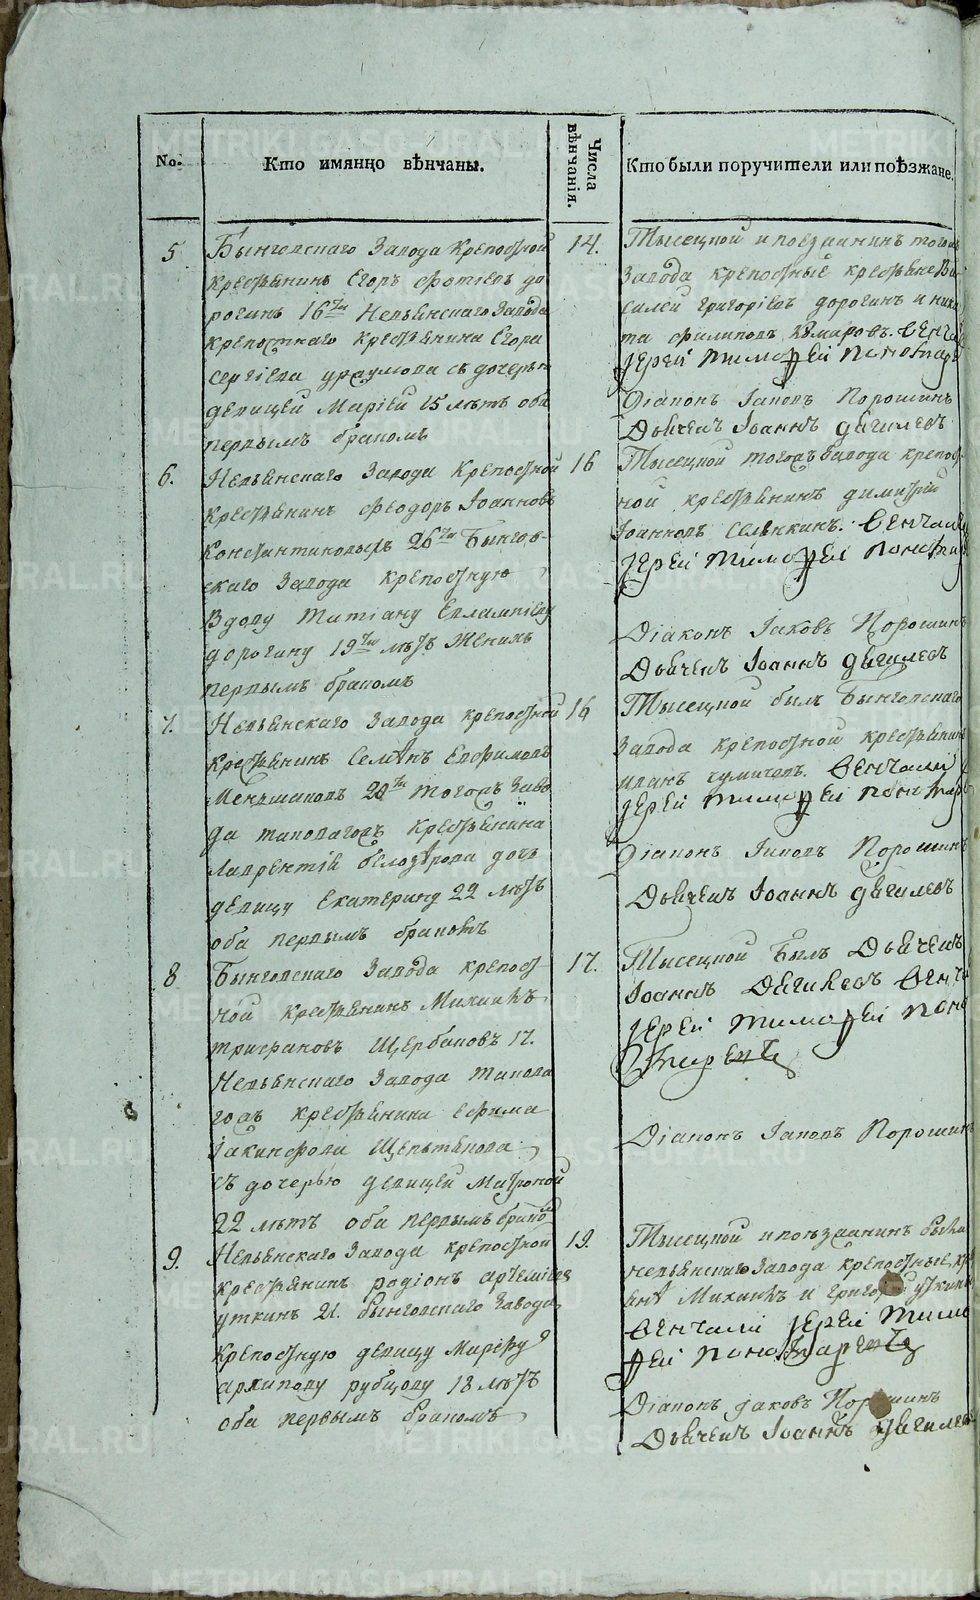 No.
Кто имянно вѣнчаны.
Числа вѣнчанія.
Кто были поручители или поѣзжане.
5
Бынговскаго Завода Крепостной
крестьянинъ Егоръ Фотіевъ до
рогинъ 16ти Невьянскаго Завода
крепостнаго крестьянина Егора
Сергіева съ дочерью
девицей Маріей 15 лѣтъ оба
первымъ бракомъ
14.
Тысецкой и поезданинъ тогожъ
Завода крепостные крестьяне Ва
силей григоріевъ дорогинъ и ники
та филиповъ Венчали
Іерей Тимофей
Діаконъ Іаковъ Порошинъ
Дьячекъ Іоаннъ
6.
Невьянскаго Завода Крепостной
крестьянинъ Феодоръ Іоанновъ
Константиновыхъ 26ти Бынгов-
скаго Завода крепостную
Вдову Татіану Евлампіеву
дорогину 19ти лѣтъ Женихъ
первымъ бракомъ
16
Тысецкой тогожъ Завода крепос-
ной крестьянинъ димитрій
Іоанновъ Селянкинъ. Венчали
Іерей Тимофей
Діаконъ Іаковъ Порошинъ
Дьячекъ Іоаннъ
7.
Невьянскаго Завода крепостной
крестьянинъ Семенъ Ефимовъ
Меньшаковъ 20ти тогожъ Заво
да таковагожъ крестьянина
Лаврентія белозѣрова дочь
девицу Екатерину 22 лѣтъ
оба первымъ бракомъ
16
Тысецкой былъ Бынговскаго
Завода крепостной крестьянинъ
иванъ Венчали
Іерей Тимофей
Діаконъ Іаковъ Порошинъ
Дьячекъ Іоаннъ
8
Бынговскаго Завода крепост-
ной крестьянинъ Михаилъ
Трифановъ Щербаковъ 17.
Невьянскаго Завода такова
гожъ крестьянина Ефима
Іакинфова
съ дочерью девицей Матроной
22 лѣтъ оба первымъ бракомъ
17.
Тысецкой былъ Дьячекъ
Іоаннъ Венча
Іерей Тимофей
Діаконъ Іаковъ Порошинъ
9.
Невьянскаго Завода крепостной
крестьянинъ родіонъ артеміевъ
уткинъ 21. бынговскаго Завода
крепостную девицу Марфу
архипову рубцову 18 лѣтъ
оба первымъ бракомъ
19.
Тысецкой и поезданинъ были
невьянскаго Завода крепостные кр
Михаилъ и григорей уткины
Венчали Іерей Тимо
фей
Діаконъ Іаковъ Порошинъ
Дьячекъ Іоаннъ
METRIKI.GASO-URAL.RU